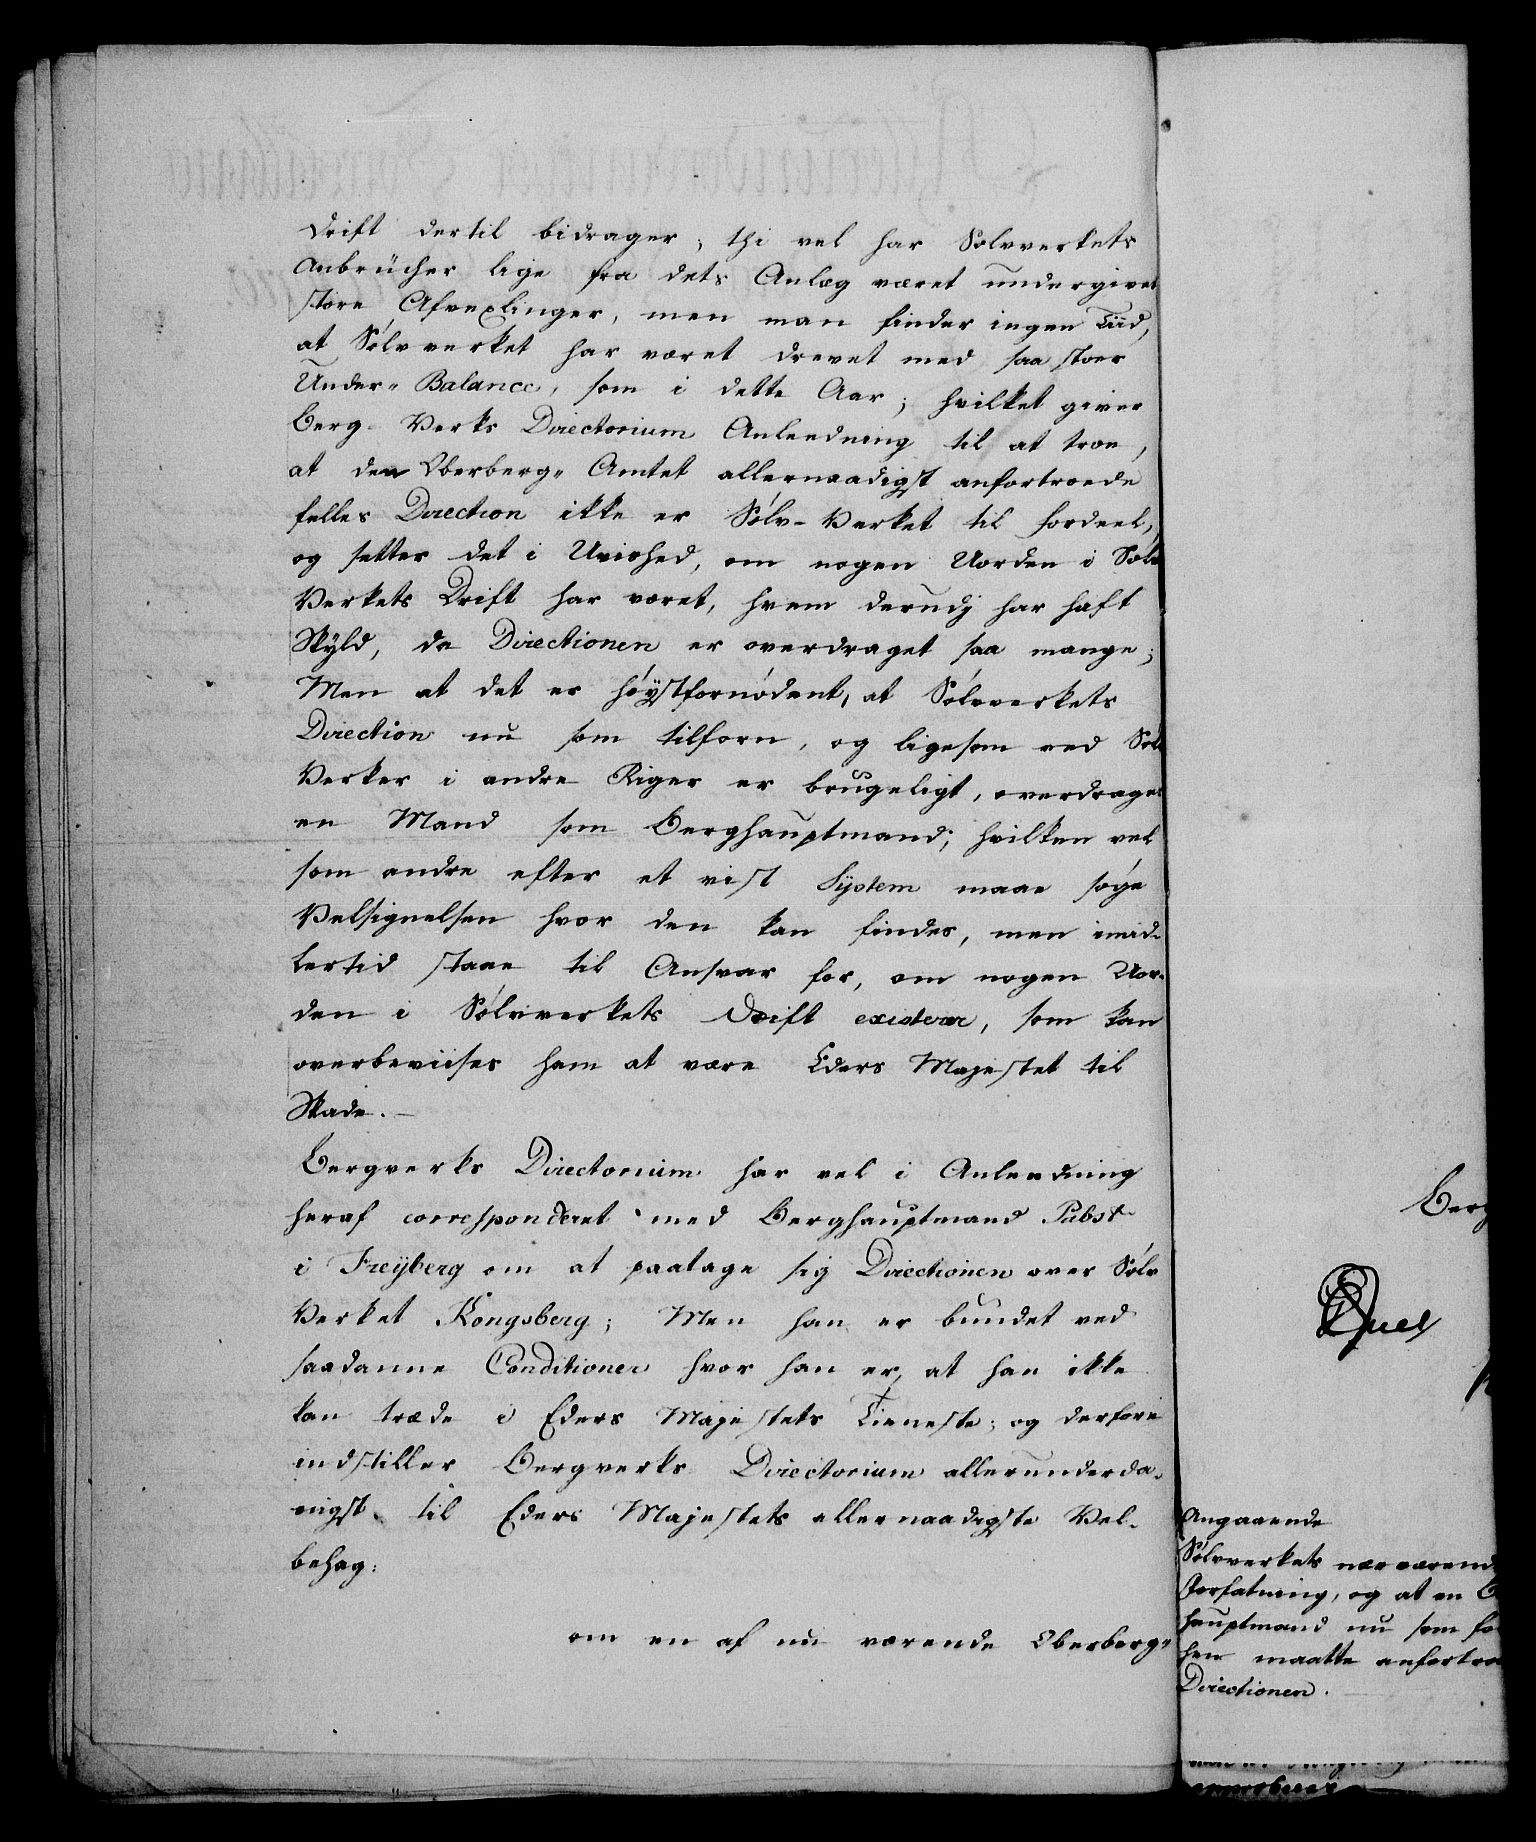 Drift dertil bidrager; thi vel har Sølvverkets
Anbrücher lige fra dets Anlæg været undergivet
store Afvexlinger, men man finder ingen Tiid,
at Sølvverket har været drevet med saa stoer
Under-Balance, som i dette Aar; hvilket giver
Berg-Verks Directorium Anleedning til at troe,
at den Oberberg-Amtet allernaadigst anfortroede
felles Direction ikke er Sølv-Verket til fordeel,
og setter det i Uvished, om nogen Uorden i Sølv
Verkets Drift har været, hvem derudj har haft
Skyld, da Directionen er overdraget saa mange;
Men at det er høystfornødent, at Sølvverkets
Direction nu som tilforn, og ligesom ved Sølv
Verker i andre Riger er brugeligt, overdrages
en Mand som Berghauptmand; hvilken vel
som andre efter et vist System maae søge
Velsignelsen hvor den kan findes, men imid-
lertid staae til Ansvar for, om nogen Uor-
den i Sølvverkets Drift existerer, som kan
overbeviises ham at være Eders Majestet til
Skade.
Bergverks Directorium har vel i Anleedning
heraf corresponderet med Berghauptmand Pabst
i Freyberg om at paatage sig Directionen over Sølv
Verket Kongsberg; Men han er bundet ved
saadanne Conditioner hvor han er, at han ikke
kan træde i Eders Majestets Tieneste; og derfore
indstiller Bergverks Directorium allerunderda-
nigst til Eders Majestets allernaadigste Vel-
behag:
om en af nu værende Oberberg-
Berg
Juel
Angaaende
Sølvverkets nærværende
Forfatning, og at en B
hauptmand nu som for
hen maatte anfortroe
Directionen.